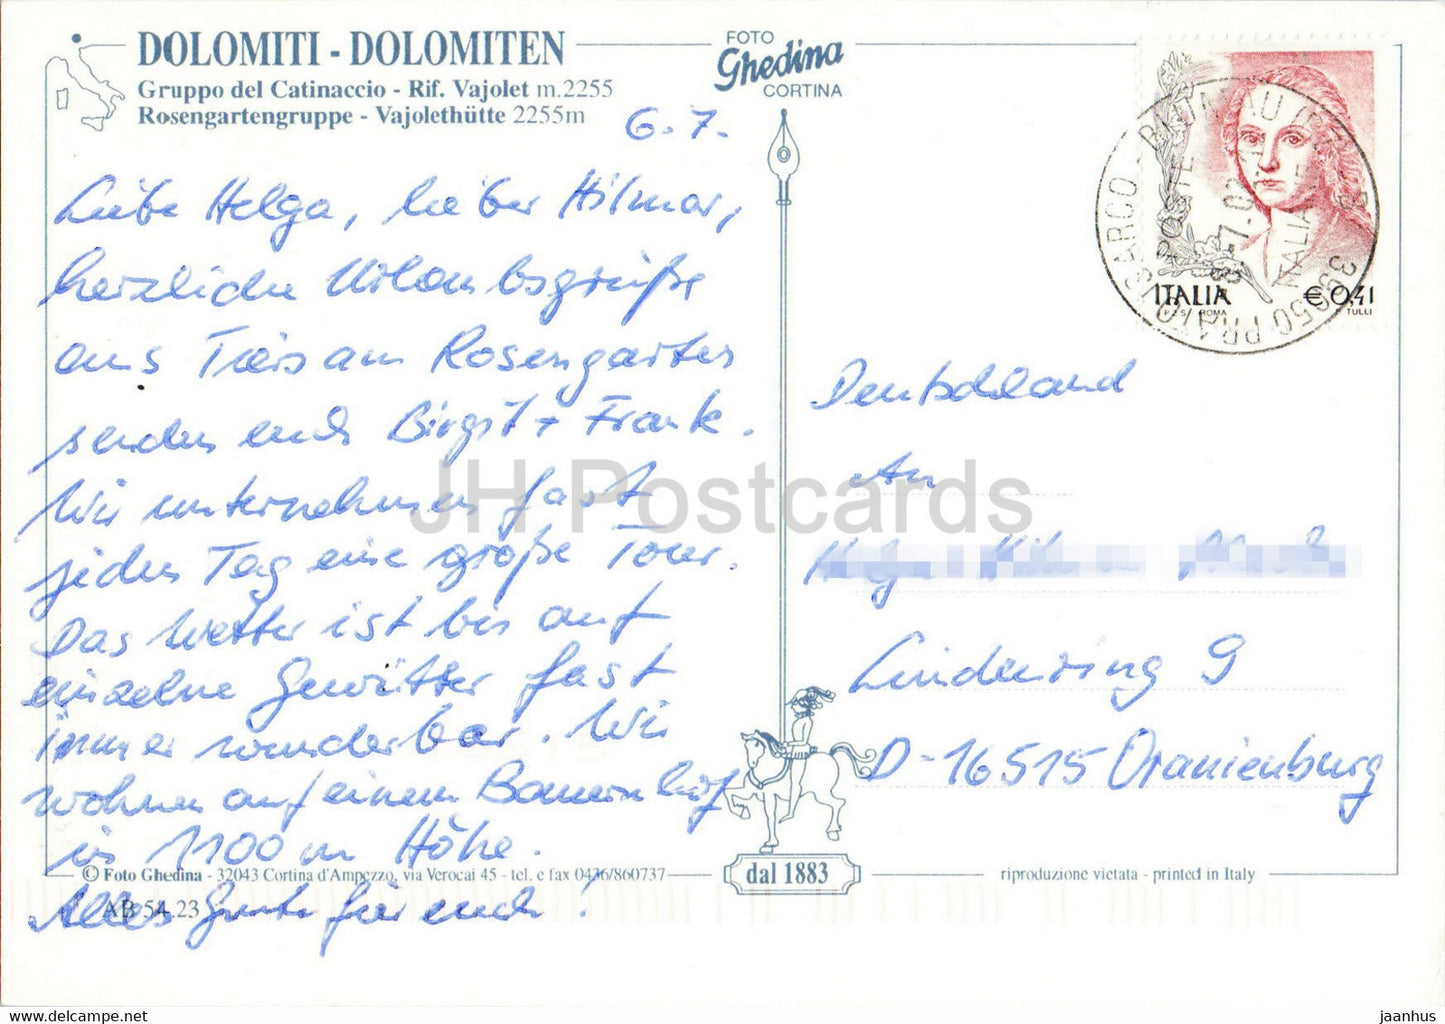 DOLOMITI - DOLOMITEN
Gruppo del Catinaccio - Rif. Vajolet m.2255
Rosengartengruppe - Vajolethütte 2255m
FOTO
Ghedina
CORTINA
6.7.
Liebe Helga, lieber Hilmar,
herzliche Urlaubsgrüße
aus Tiers am Rosengarten
senden euch Birgit + Frank.
Wir unternehmen fast
jeden Tag eine große Tour.
Das Wetter ist bis auf
einzelne Gewitter fast
immer wunderbar. Wir
wohnen auf einem Bauernhof
in 1100 m Höhe.
Alles Gute für euch!
ITALIA € 0,41
P Z S ROMA TULLI
POSTE ITALIANE
39050 PRATO ISARCO
Deutschland
An
Lindenring 9
D-16515 Oranienburg
JH Postcards
© Foto Ghedina - 32043 Cortina d'Ampezzo, via Verocai 45 - tel. e fax 0436/860737
AB 54.23
dal 1883
riproduzione vietata - printed in Italy
jaanhus ex delcampe.net